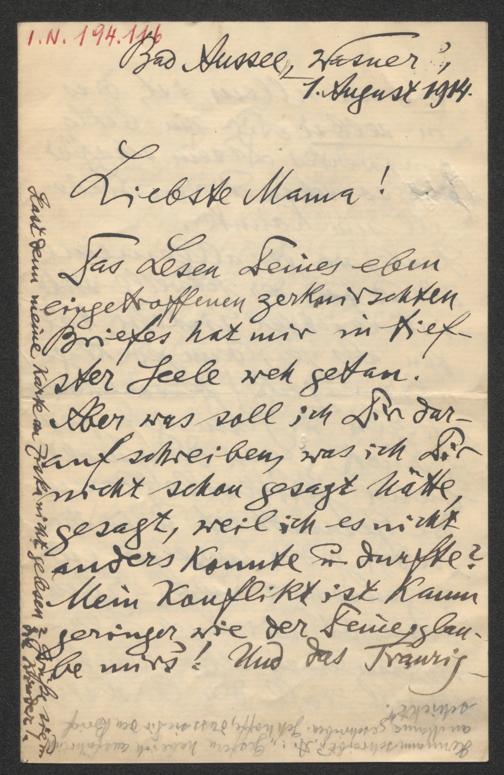 I.N. 194.116
Bad Aussee, Wasner,
1. August 1914.
Liebste Mama!
Das Lesen Deines eben
eingetroffenen zerknirschten
Briefes hat mir in tief-
ster Seele weh getan.
Aber was soll ich Dir dar-
auf schreiben, was ich Dir
nicht schon gesagt hätte,
gesagt, weil ich es nicht
anders konnte u durfte?
Mein Konflikt ist kaum
geringer wie der Deine, glau-
be mirs! Und das Traurig-
Hast denn meine Karte an nicht gelesen?
die Kinder
Hermann schreibt
an geschrieben. Ich hoffe, dass sie Dir den Brief
schickt.